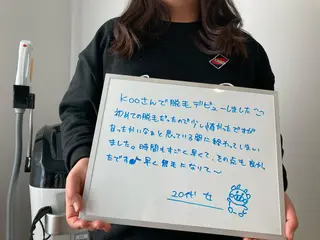 Kooさんで脱毛デビューしました
初めての脱毛だったので少し怖かったですが
なったかいなぁと思っている間に終わってしまい
ました。時間もすごく早くて、その点も良かっ
たです♪ 早く無毛になりて〜
20代 女